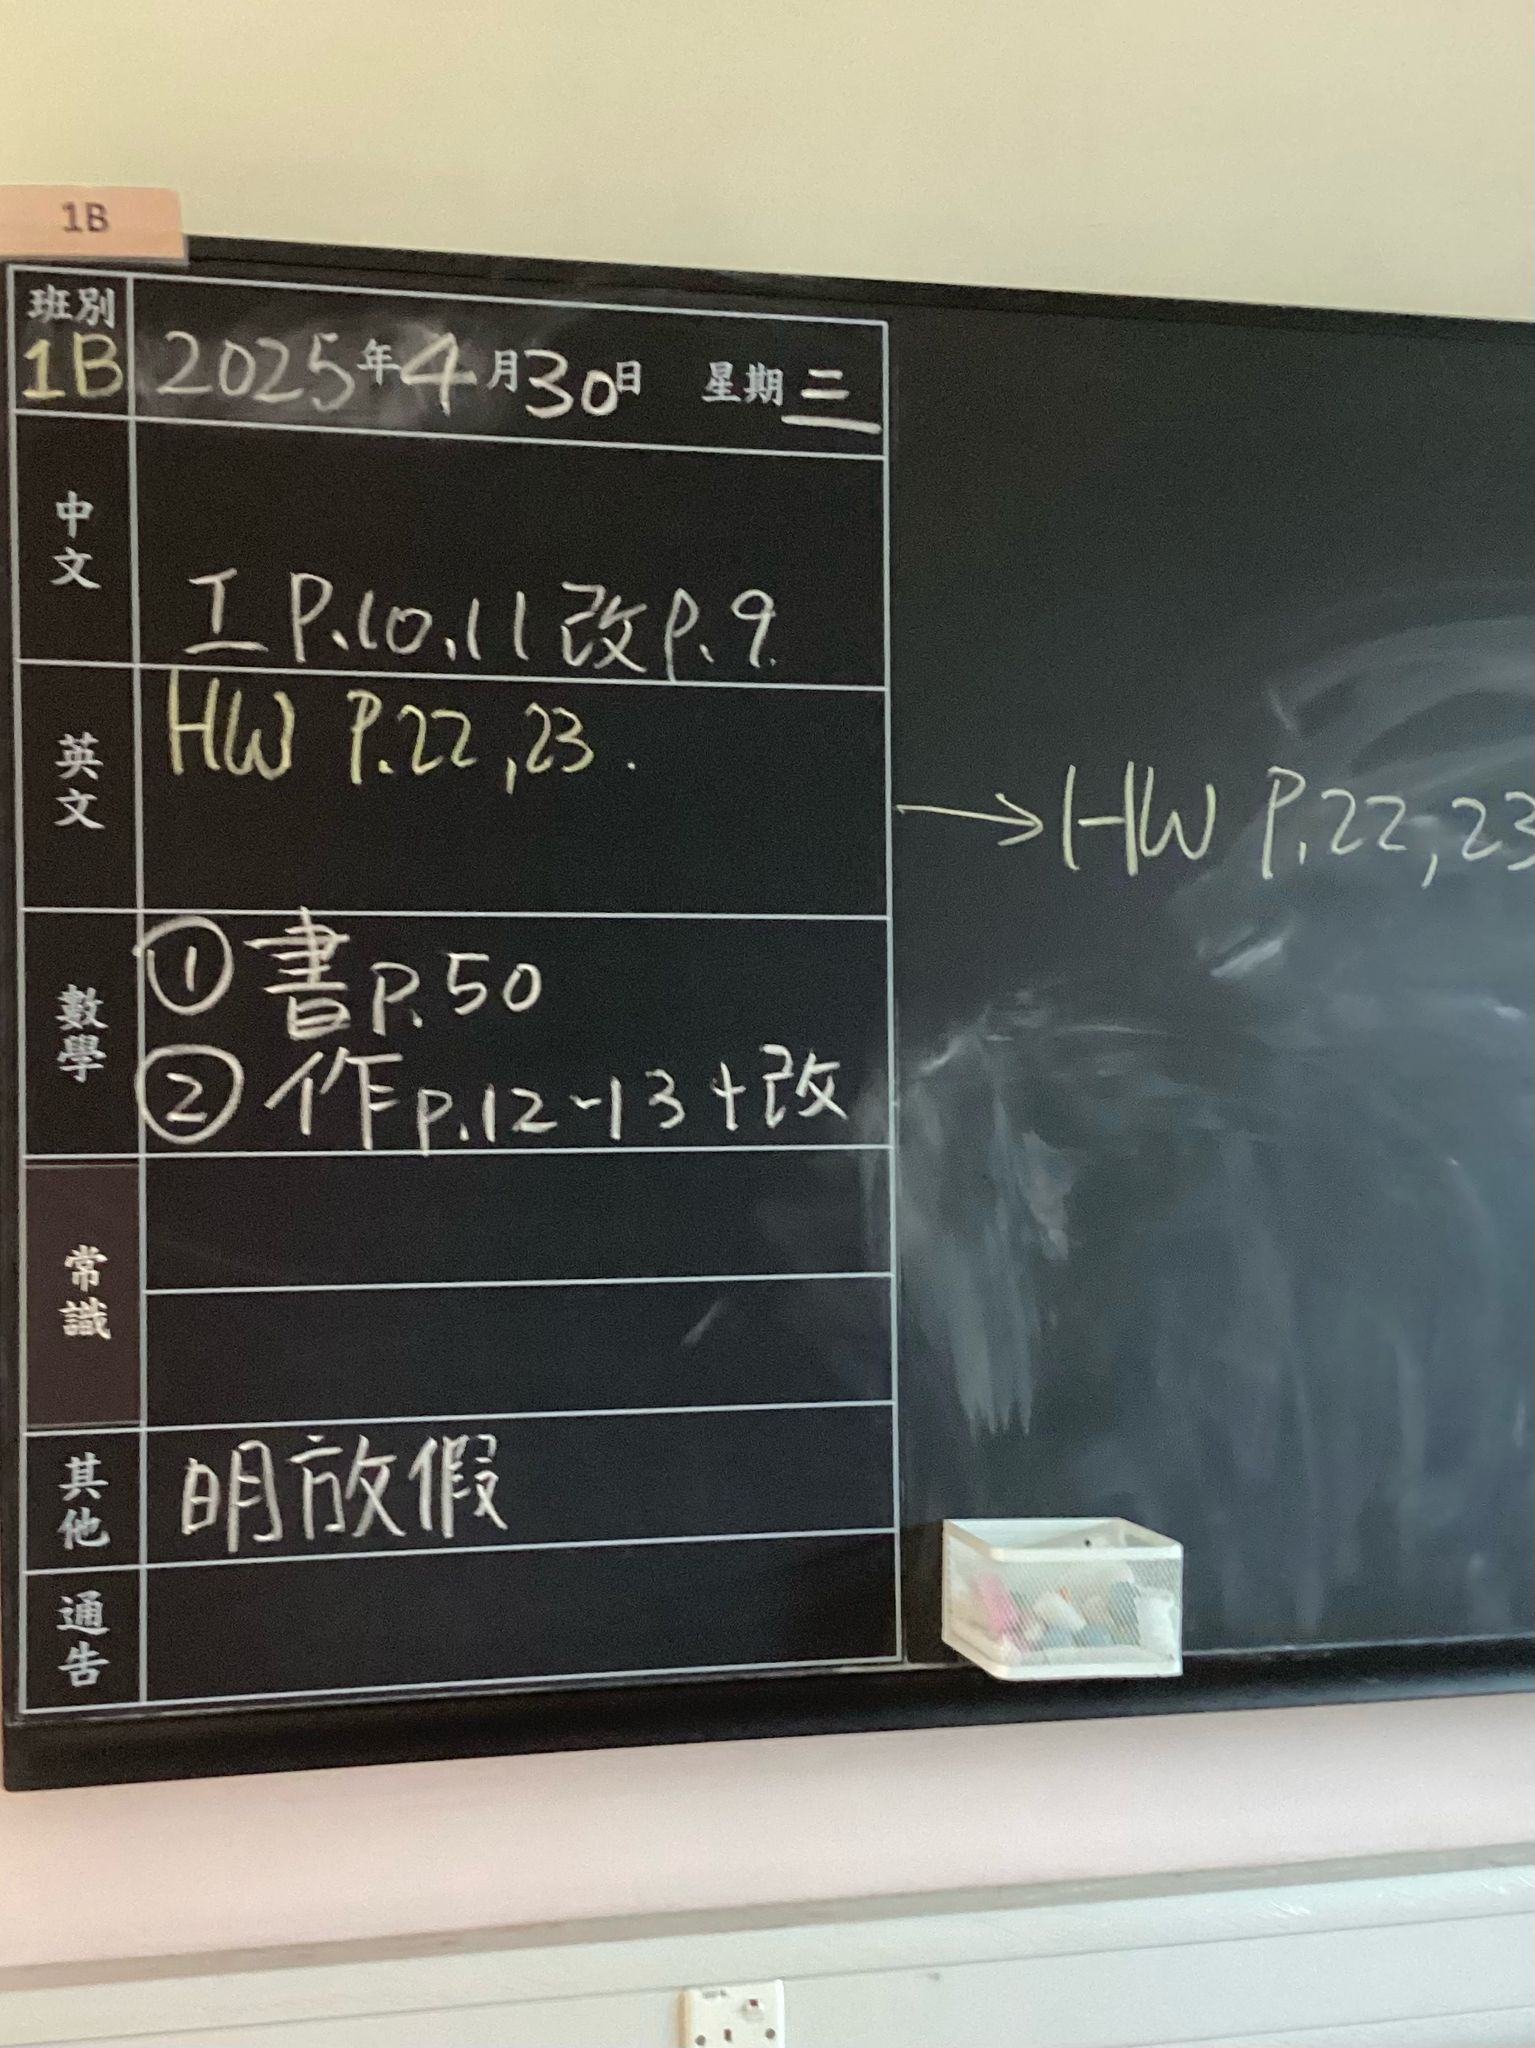 1B
班別
1B
2025年4月30日 星期三
中文
工 P.10,11 改 P.9.
英文
HW P.22,23.
→HW P.22,23
數學
① 書 P.50
② 作 P.12-13+改
常識
其他
明放假
通告